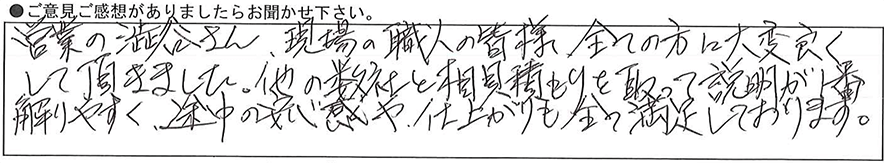 ●ご意見ご感想がありましたらお聞かせ下さい。
営業の澁谷さん、現場の職人の皆様、全ての方に大変良く
して頂きました。他の数社と相見積もりを取って説明が1番
解りやすく、途中の安心感や、仕上がりも全て満足しております。